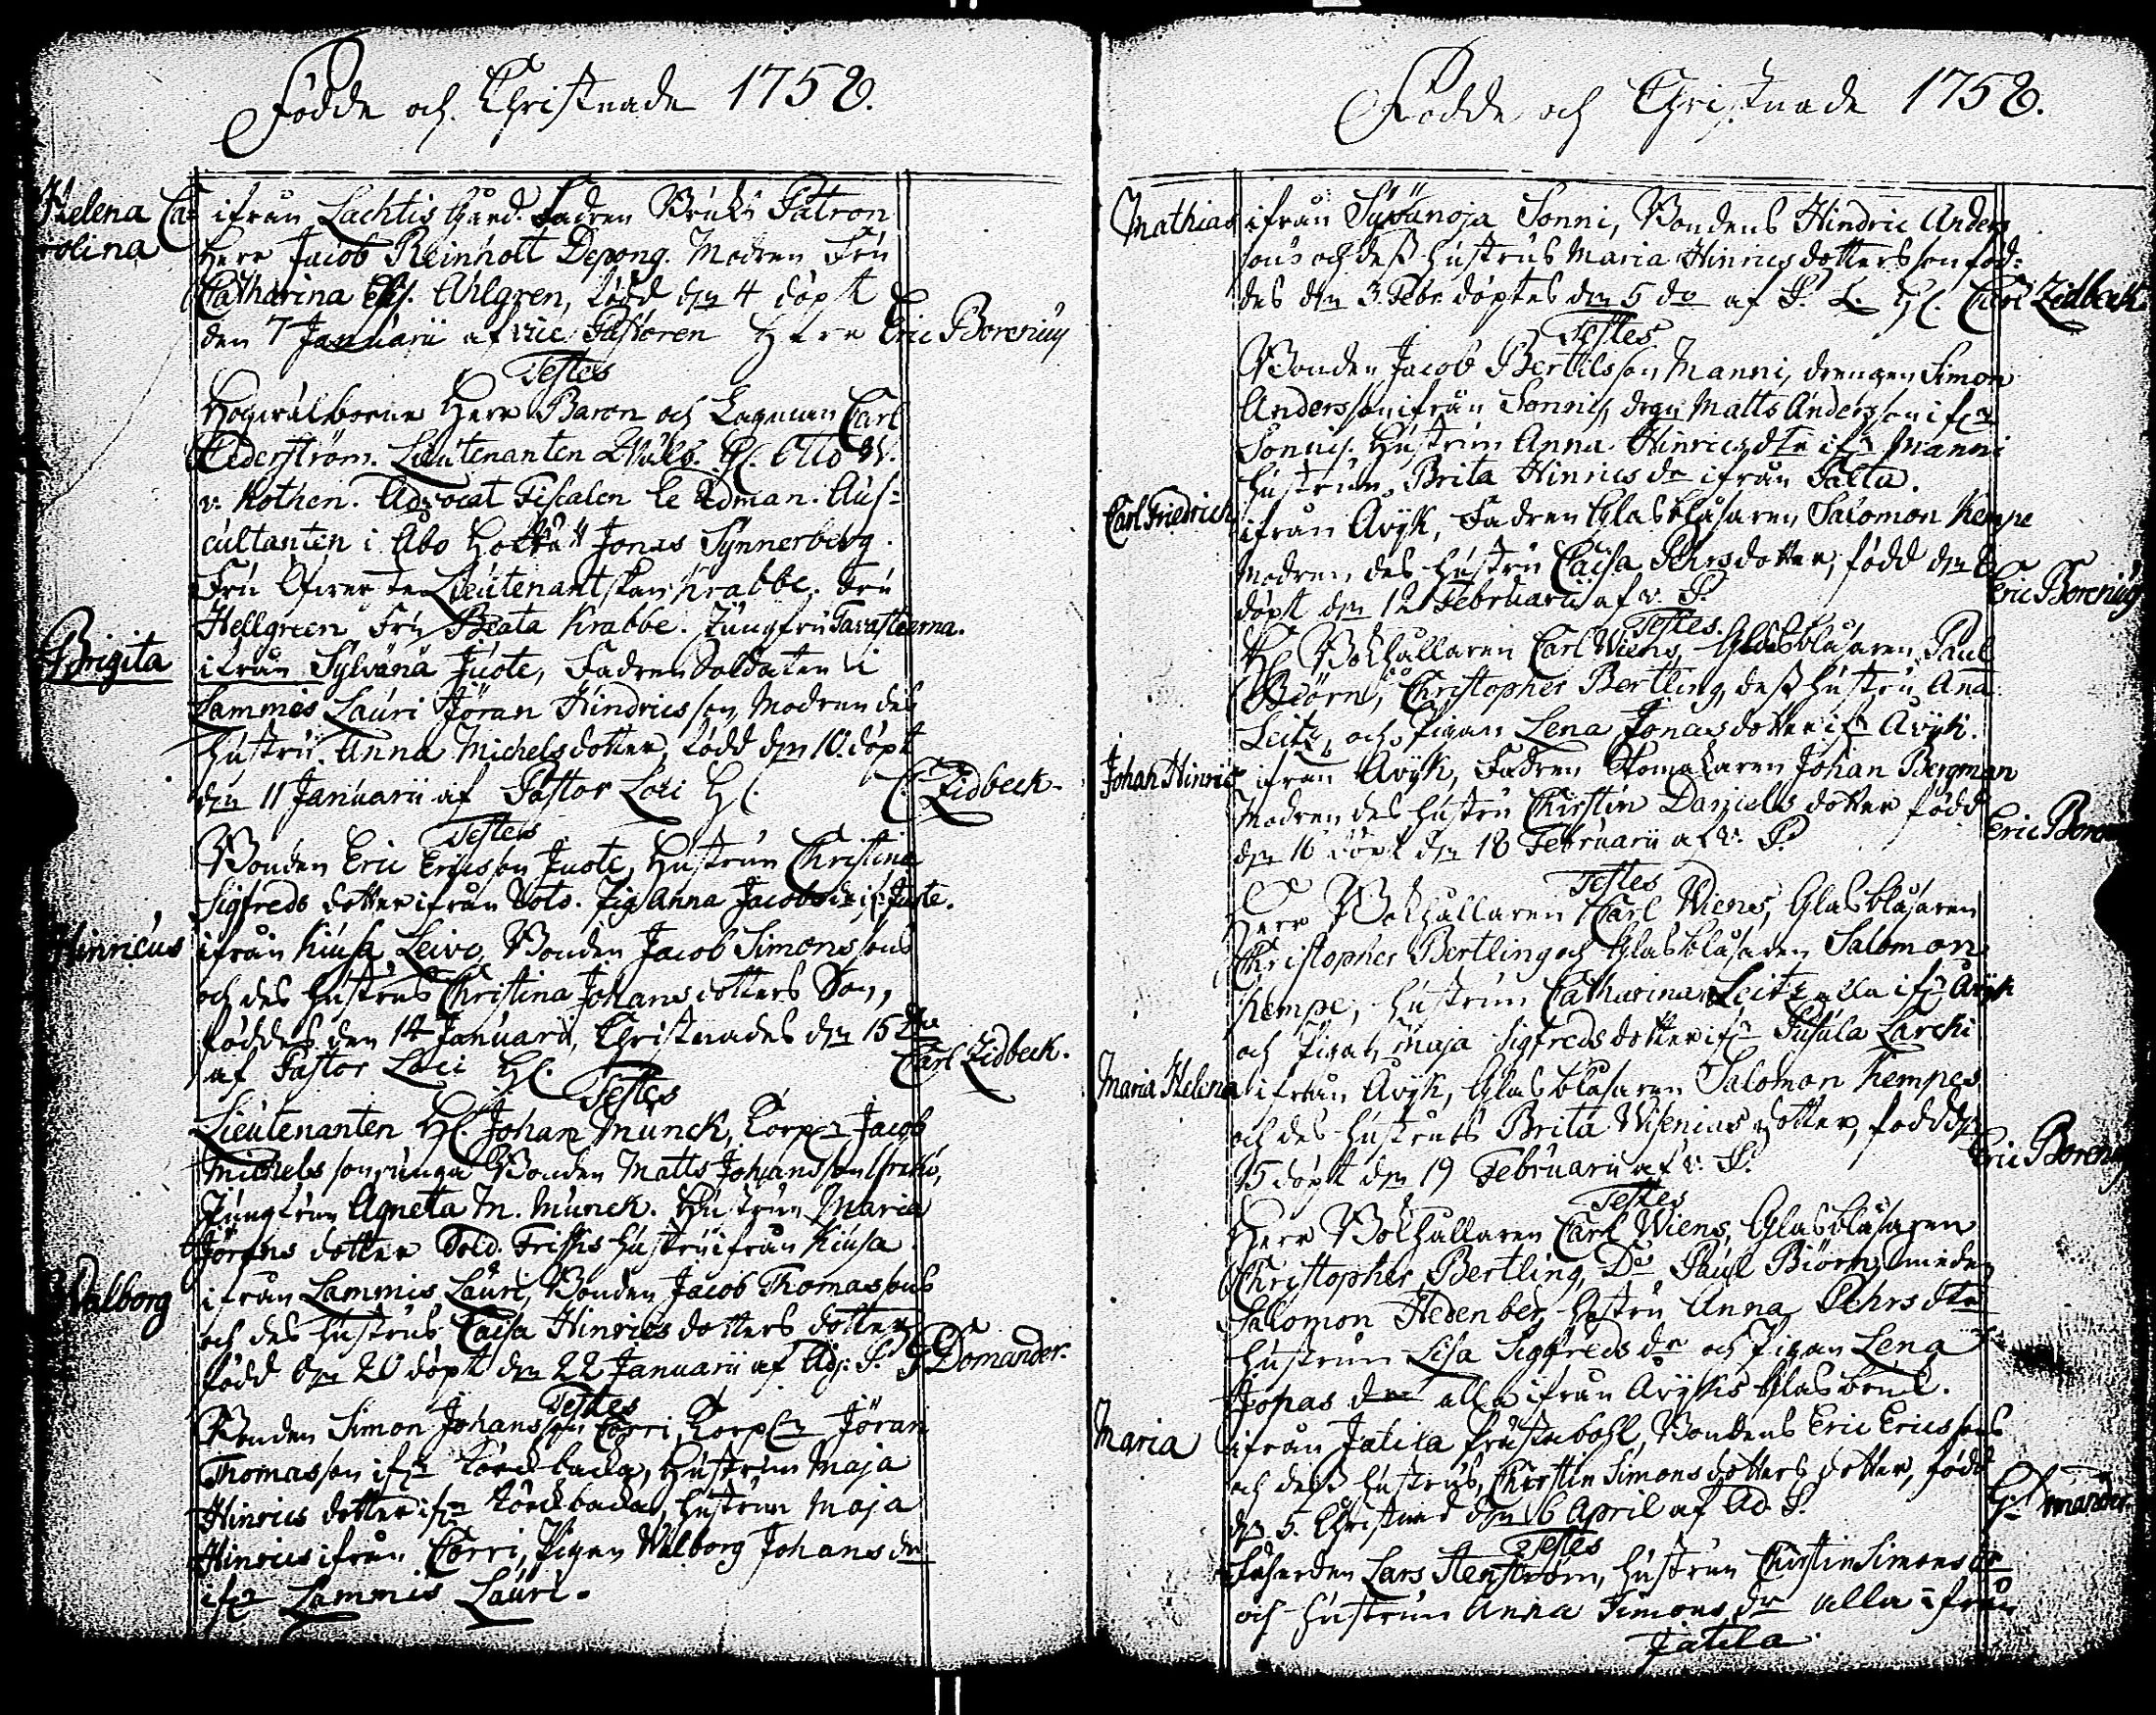 Födde och Christnade 1758.
Helena Ca=
rolina
ifrån Lachtis Gård. Fadren Bruks Patron
Herr Jacob Reinholt Depong. Modren Fru
Catharina Ahlgren, född den 4 döpt
den 7 Januarii af vice Pastoren Herr Eric Borenius
Testes
Herr Baron och Lagman Carl
Cederström. Lieutenanten Otto W.
v. Kothen. Advocat Fiscalen Aus=
cultanten i Åbo Jonas Synnerberg.
Fru Lieutenantskan Krabbe. Fru
Hellgreen Fru Beata Krabbe. Jungfru Tavastierna.
Brigita
ifrån Sylvänä Juote, Fadren Soldaten i
Lammis Lauri Jöran Hindricsson, Modren des
hustru Anna Michelsdotter, född den 10. döpt
den 11 Januarii af Pastor Loci H. C. Zidbeck.
Testes
Bonden Eric Ericsson Juote, Hustrun Christina
Sigfreds dotter ifrån Pig. Anna Jacobs
Hinricus
ifrån Kiusa Leivo, Bonden Jacob Simonssons
och des hustrus Christina Johans dotters Son,
föddes den 14 Januarii, Christnades den 15 dito
af Pastor Loci H. Carl Zidbeck.
Testes
Lieutenanten H. Johan Munck, Jacob
Michelsson, unga Bonden Matts Johansson
Jungfrun Agneta M. Munck. Hustrun Maria
Jörens dotter Sold. Friskis hustru ifrån Kiusa.
Walborg
ifrån Lammis Lauri, Bonden Jacob Thomassons
och des hustrus Caisa Hinrics dotters dotter
född den 20 döpt den 22 Januarii af Adj. P. G. Domander.
Testes
Bonden Simon Johansson Corri, Jöran
Thomasson ifr. Hustrun Maja
Hinrics dotter ifr. hustrun Maja
Hinrics ifrån Corri, Pigan Walborg Johans dr
ifr. Lammis Lauri.
Födde och Christnade 1758.
Mathias
ifrån Syvänoja Sonni, Bondens Hindric Anders
sons och dess hustrus Maria Hinrics dotters son föd=
des den 3. Febr. döptes den 5 do af P. L. H. Carl Zidbeck.
Testes
Bonden Jacob Bertilsson Manni, drengen Simon
Andersson ifrån Sonni, dreng Matts Andersson ifr.
Sonni, Hustrun Anna Hinrics dtr ifr. Manni
hustrun Brita Hinrics dr ifrån Salta.
Carl Friedrich
ifrån Avijk, Fadren Glasblåsaren Salomon Kempe
Modren, des hustru Caisa Pehrsdotter, född den 8
döpt den 12 Februarii af v. P. Eric Borenius
Testes.
H. Bokhållaren Carl Wiens, Glasblåsaren Paul
Biörn, Christopher Bertling, dess hustru Ana
Leitz, och Pigan Lena Jonasdotter ifr. Avijk.
Johan Hinric
ifrån Avijk, Fadren Johan Bergman
Modren des hustru Chirstin Daniels dotter född
den 16 döpt den 18 Februarii af v. P. Eric Boren
Testes
Herr Bokhållaren Carl Wiens, Glasblåsaren
Christopher Bertling och Glasblåsaren Salomon
Kempe, hustrun Catharina Leitz alla ifr. Avijk
och Pigan Maja Sigfredsdotter ifr. Pusula Larcki
Maria Helena
ifrån Avijk, Glasblåsaren Salomon Kempes
och des hustrus Brita Wisenias dotter, född den
15 döpt den 19 Februarii af v. P. Eric Boren
Testes
Herr Bokhållaren Carl Wiens, Glasblåsaren
Christopher Bertling, Do Paul Biörn, smeden
Salomon Hedenberg, hustru Anna Pehrs dtr
hustrun Lisa Sigfreds dr och Pigan Lena
Jonas dr alla ifrån Avijkis Glasbruk.
Maria
ifrån Jatila Krustubohl, Bondens Eric Ericssons
och dess hustrus, Chirstin Simons dotters dotter, född
d. 5. Christnad den 6 April af Ad. P. G. Domander
Testes
Lars Stenström, hustrun Chirstin Simons dr
och hustrun Anna Simons dr alla ifrån
Jatila.